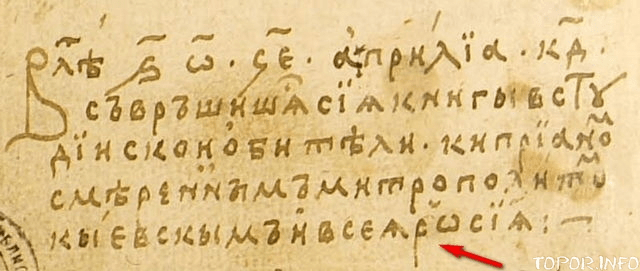 В лѣⷮ ҂ѕ҃ ѡ҃ · ч҃е · априлїа · к҃д ·
съвръшишѧ сїѧ книгы в сту
дїискои обитѣли · кипрїаноⷨ
смѣреннымъ митрополитоⷨ
кыевскымъ и всеѧ рѡсїѧ :–
TOPOR.INFO